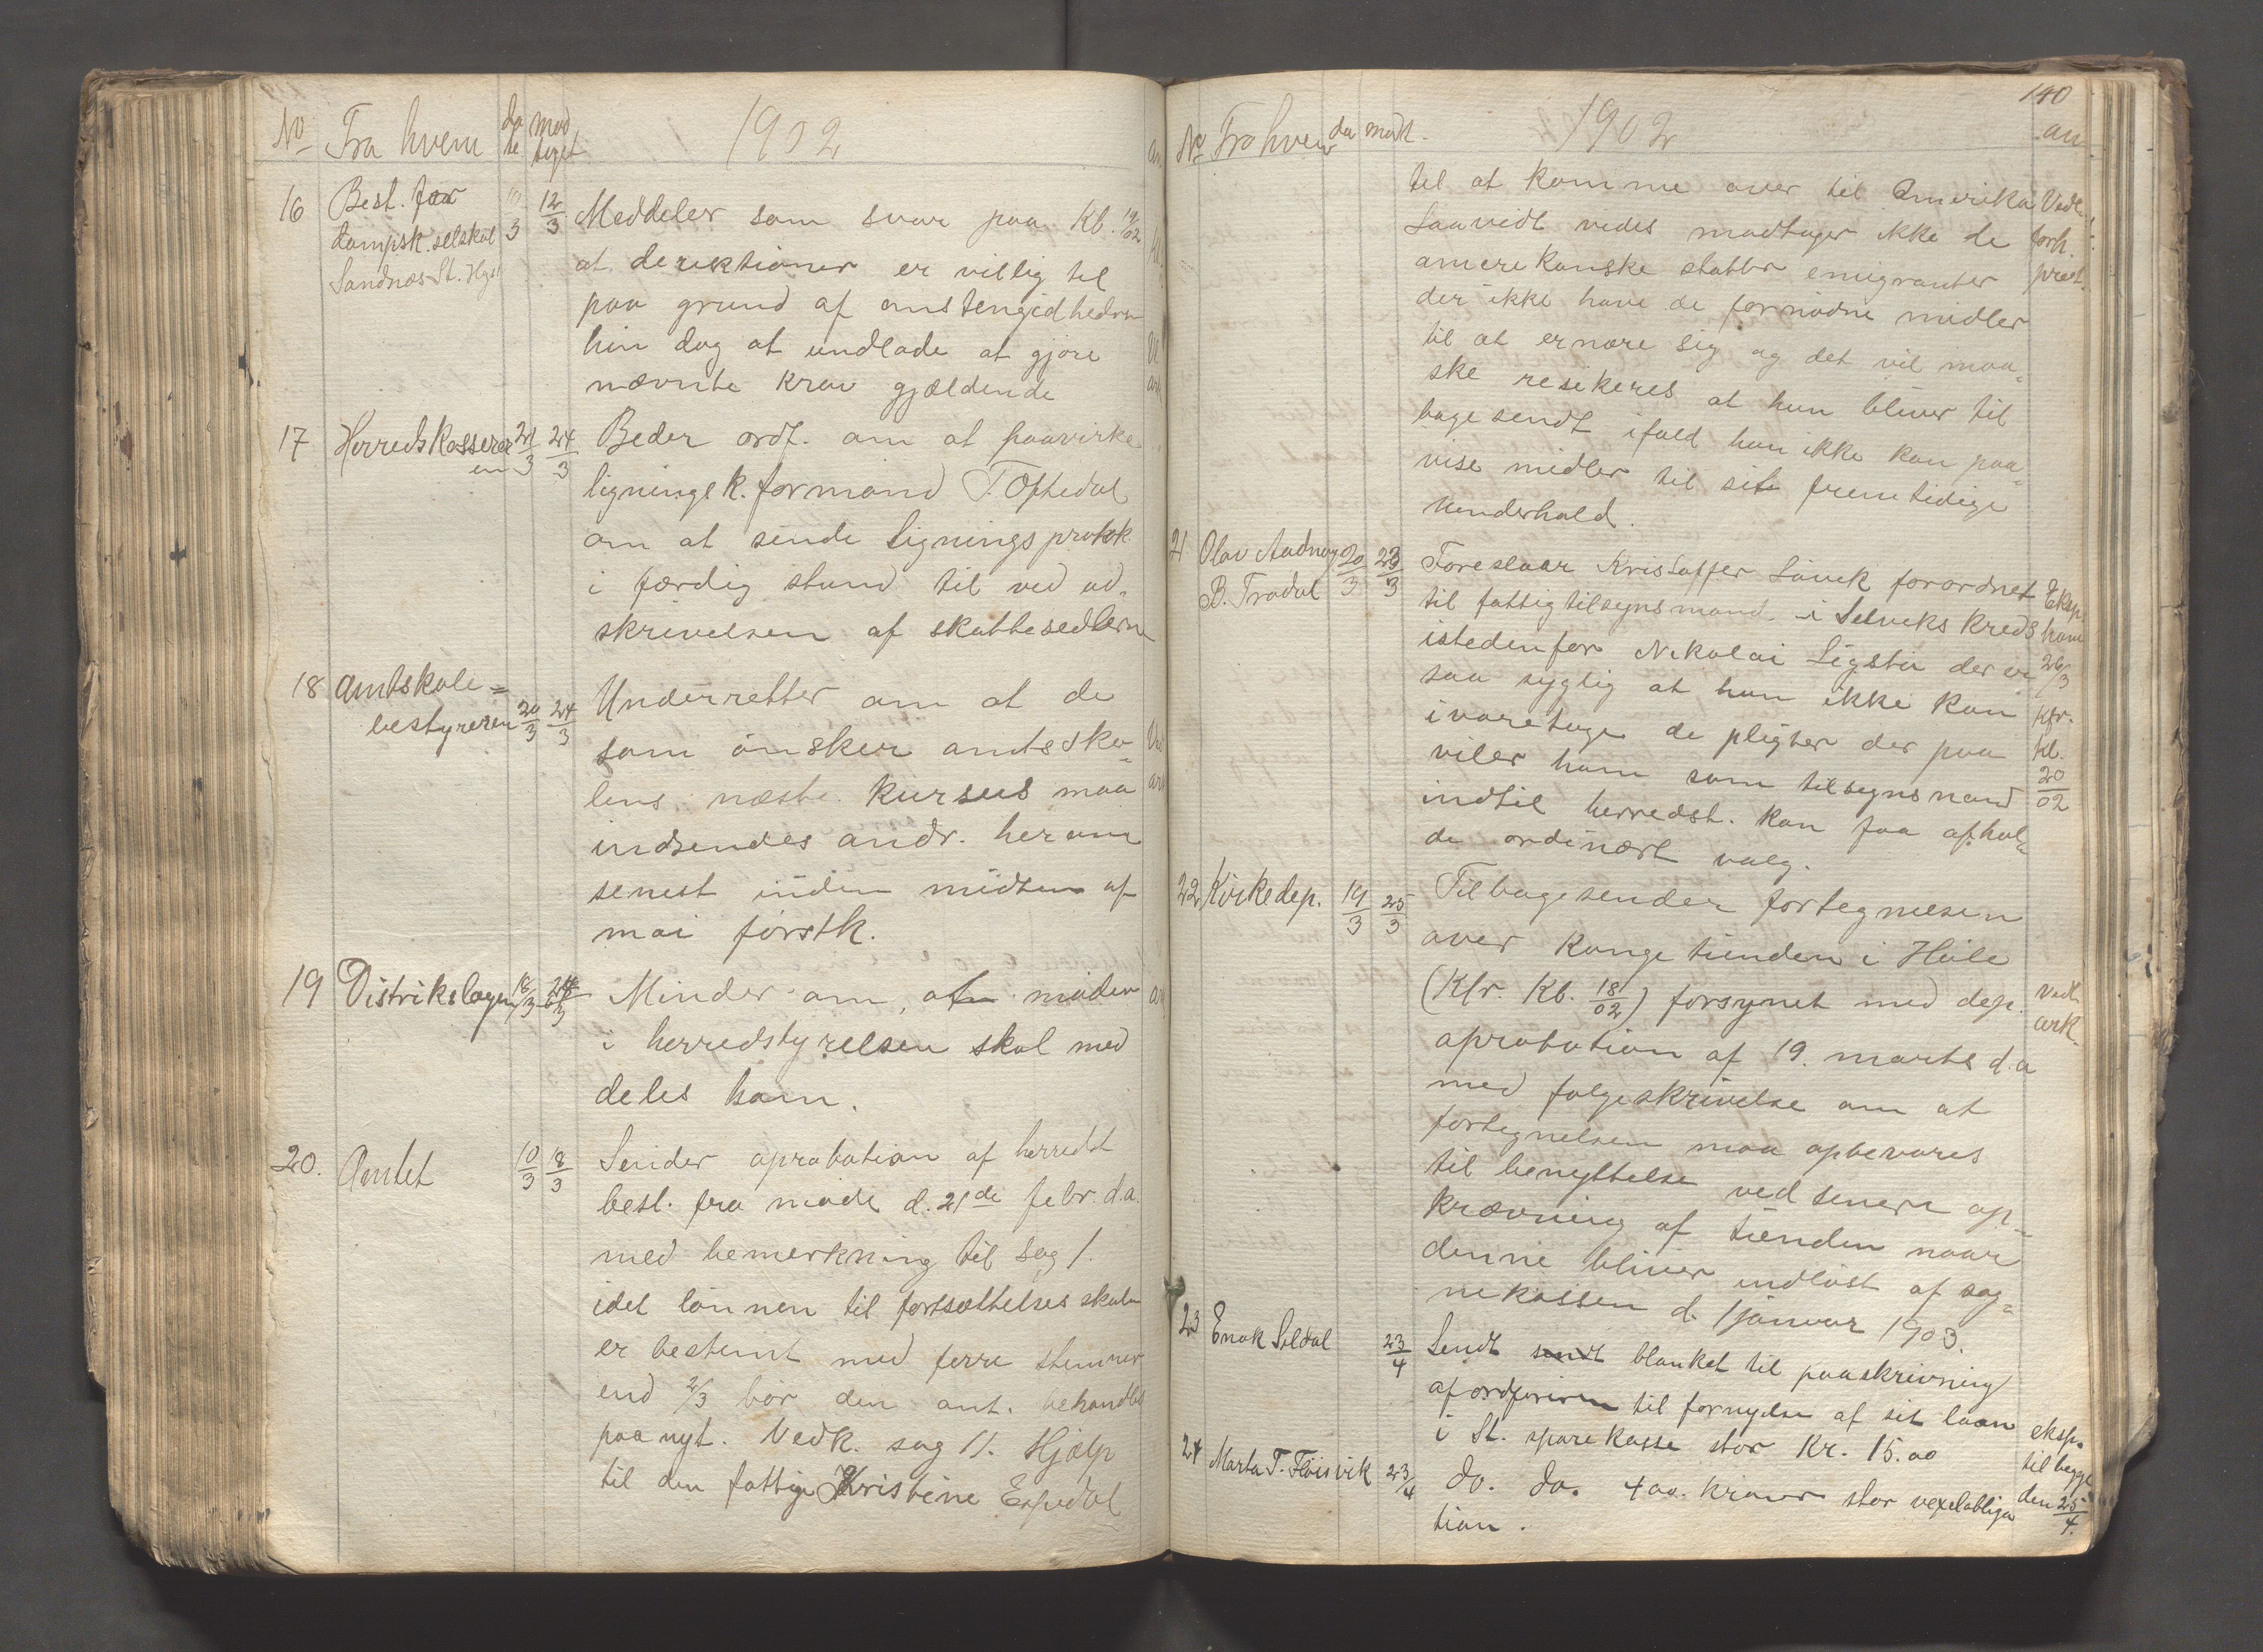 No Fra hvem da te mod taget 1902
16 Best. for dampsk. selskab Sandnæs-St. 3 12/3 Meddeler som svar paa Kb. 19/02
at derektionen er villig til
paa grund af omstengidheden
hin dag at undlade at gjøre
nævnte krav gjældende
17 Herredskasseren 24/3 Beder ordf. om at paavirke
lignings k. formand T. Oftedal
om at sende ligningsprotok.
i færdig stand til ved ud-
skrivelsen af skattesedlerne
18 Amtskole=
bestyreren 20/3 24/3 Underretter om at de
som ønsker amtssko=
lens næste kursus maa
indsendes andr. herom
senest inden midten af
mai førstk.
19 Distrikslægen 18/3 Minder om at møder
i herredstyrelsen skal med
deles ham.
20. Amtet 10/3 18/3 Sender aprobation af herredst
besl. fra møde d. 21de febr. d.a.
med bemerkning til sag 1.
idet lønnen til fortsættelses skolen
er bestemt med ferre stemmer
end 2/3 bør den ant. behandles
paa nyt. Vedk. sag 11. Hjælp
til den fattige Kristine Espedal
140
No Fra hvem da modt. 1902 an
til at komme over til Amerika Vedl.
Saavidt vides modtager ikke de forh.
amerekanske statter emigranter prot.
der ikke have de fornødne midler
til at ernære sig og det vil maa=
ske resikeres at hun bliver til
bage sendt ifald hun ikke kan paa=
vise midler til sit fremtidige
underhold.
21 Olav Aadnøy
B. Tradal 20/3 23/3 Foreslaar Kristoffer Løvik forordnet Eksp.
til fattigtilsynsmand i Selviks Kreds ham
istedenfor Nikolai Ligstøl der er 26/3
saa syglig at han ikke kan Kfr.
ivaretage de pligter der paa Kb.
viler ham som tilsynsmand 20/02
indtil herredst. kan faa afhol=
de ordinært valg.
22 Kirkedep. 19/3 25/3 Tilbagesender fortegnelsen
over kongetienden i Høle
(Kfr. Kb. 18/02) forsynet med dep. vedl.
aprobation af 19. marts d.a ark.
med følgeskrivelse om at
fortegnelsen maa opbevares
til benyttelse ved senere op=
krævning af tienden naar
denne bliver indløst af sog=
nekassen d. 1 januar 1903.
23 Enok Seldal 23/4 Sendt sendt blanket til paaskrivning
af ordføreren til fornyelse af sit laan eksp.
i St. sparekasse stor kr. 15.00 til begge
24 Marta T. Fløisvik 23/4 do. do. 400. kroner stor vexelobliga den 25/4
tion.